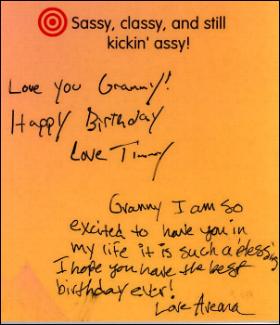 Sassy, classy, and still
kickin' assy!
Love you Granny!
Happy Birthday
Love Timmy
Granny I am so
excited to have you in
my life it is such a blessing
I hope you have the best
birthday ever!
Love